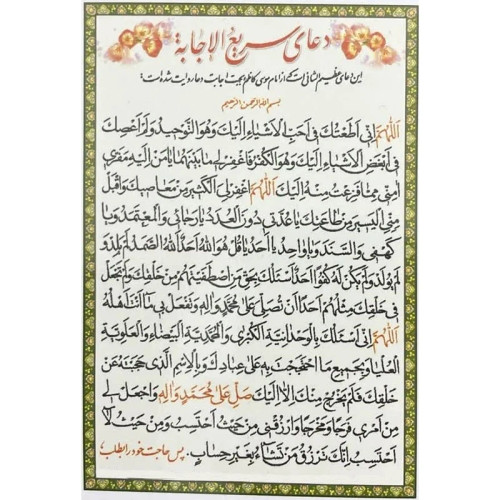 دعای سریع الإجابة
این دعای عظیم الشانی است که از امام موسی کاظم بجهت اجابت دعا روایت شده است:
بِسْمِ اللهِ الرَّحْمنِ الرَّحیمِ
اَللّٰهُمَّ اِنّی اَطَعْتُكَ فی اَحَبِّ الْاَشْیاءِ اِلَیْكَ وَهُوَ التَّوْحیدُ وَلَمْ اَعْصِكَ
فی اَبْغَضِ الْاَشْیاءِ اِلَیْكَ وَهُوَ الْكُفْرُ فَاغْفِرْ لی ما بَیْنَهُما یا مَنْ اِلَیْهِ مَفَرّی
اٰمِنّی مِمّا فَزِعْتُ مِنْهُ اِلَیْكَ اَللّٰهُمَّ اغْفِرْ لِیَ الْكَثیرَ مِنْ مَعاصیكَ وَاقْبَلْ
مِنِّی الْیَسیرَ مِنْ طاعَتِكَ یا عُدَّتی دُونَ الْعُدَدِ یا رَجائی وَالْمُعْتَمَدَ وَیا
كَهْفی وَالسَّنَدَ وَیا واحِدُ یا اَحَدُ یا قُلْ هُوَ اللهُ اَحَدٌ اَللهُ الصَّمَدُ لَمْ یَلِدْ وَ
لَمْ یُولَدْ وَلَمْ یَكُنْ لَهُ كُفُوًا اَحَدٌ اَسْئَلُكَ بِحَقِّ مَنِ اصْطَفَیْتَهُمْ مِنْ خَلْقِكَ وَلَمْ تَجْعَلْ
فی خَلْقِكَ مِثْلَهُمْ اَحَدًا اَنْ تُصَلِّیَ عَلی مُحَمَّدٍ وَالِهِ وَتَفْعَلَ بی ما اَنْتَ اَهْلُهُ
اَللّٰهُمَّ اِنّی اَسْئَلُكَ بِالْوَحْدانِیَّةِ الْكُبْری وَالْمُحَمَّدِیَّةِ الْبَیْضاءِ وَالْعَلَوِیَّةِ
الْعُلْیا وَبِجَمیعِ مَا احْتَجَجْتَ بِهِ عَلی عِبادِكَ وَبِالْاِسْمِ الَّذی حَجَبْتَهُ عَنْ
خَلْقِكَ فَلَمْ یَخْرُجْ مِنْكَ اِلّا اِلَیْكَ صَلِّ عَلی مُحَمَّدٍ وَالِهِ وَاجْعَلْ لی
مِنْ اَمْری فَرَجًا وَمَخْرَجًا وَارْزُقْنی مِنْ حَیْثُ اَحْتَسِبُ وَمِنْ حَیْثُ لا
اَحْتَسِبُ اِنَّكَ تَرْزُقُ مَنْ تَشاءُ بِغَیْرِ حِسابٍ. پس حاجت خود را بطلب؛